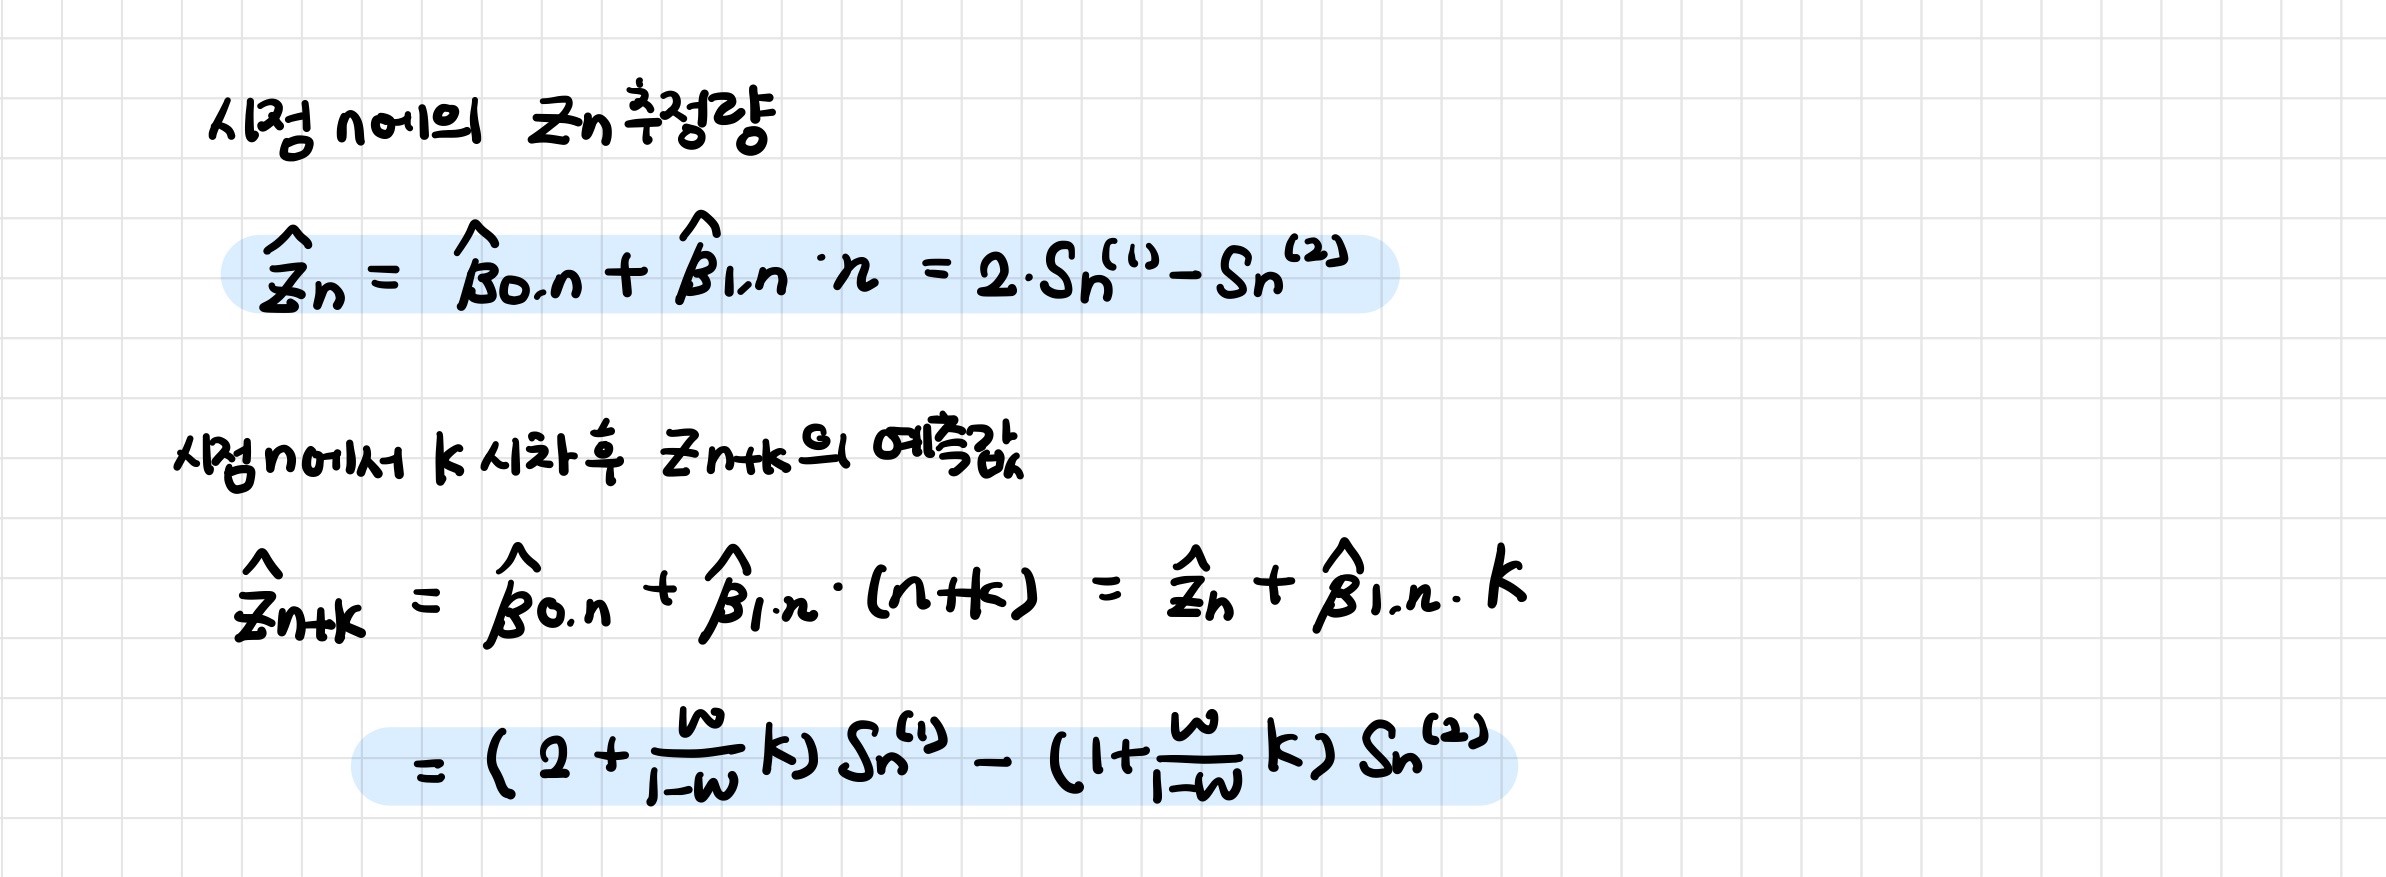 시점 n에의 Zn 추정량
Ẑn = β̂0.n + β̂1.n · n = 2 · Sn⁽¹⁾ - Sn⁽²⁾
시점 n에서 k 시차 후 Zn+k 의 예측값
Ẑn+k = β̂0.n + β̂1.n · (n+k) = Ẑn + β̂1.n · k
= (2 + w/(1-w) k) Sn⁽¹⁾ - (1 + w/(1-w) k) Sn⁽²⁾